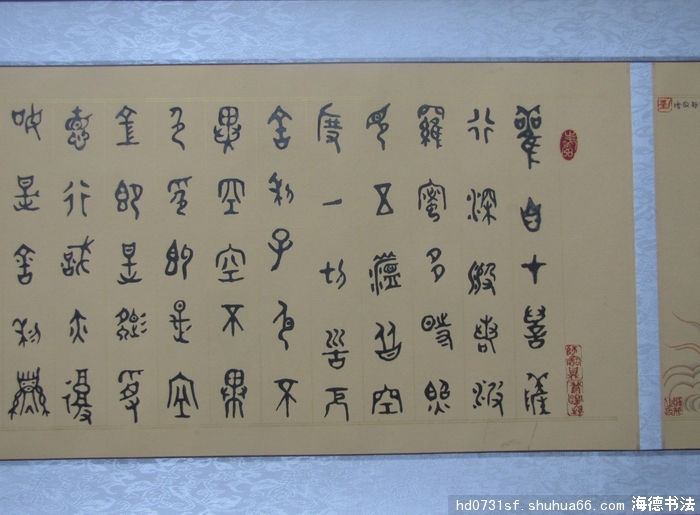 觀自在菩薩
行深般若波
羅蜜多時照
見五蘊皆空
度一切苦厄
舍利子色不
異空空不異
色色即是空
空即是色受
想行識亦復
如是舍利子
hd0731sf.shuhua66.com 海德书法